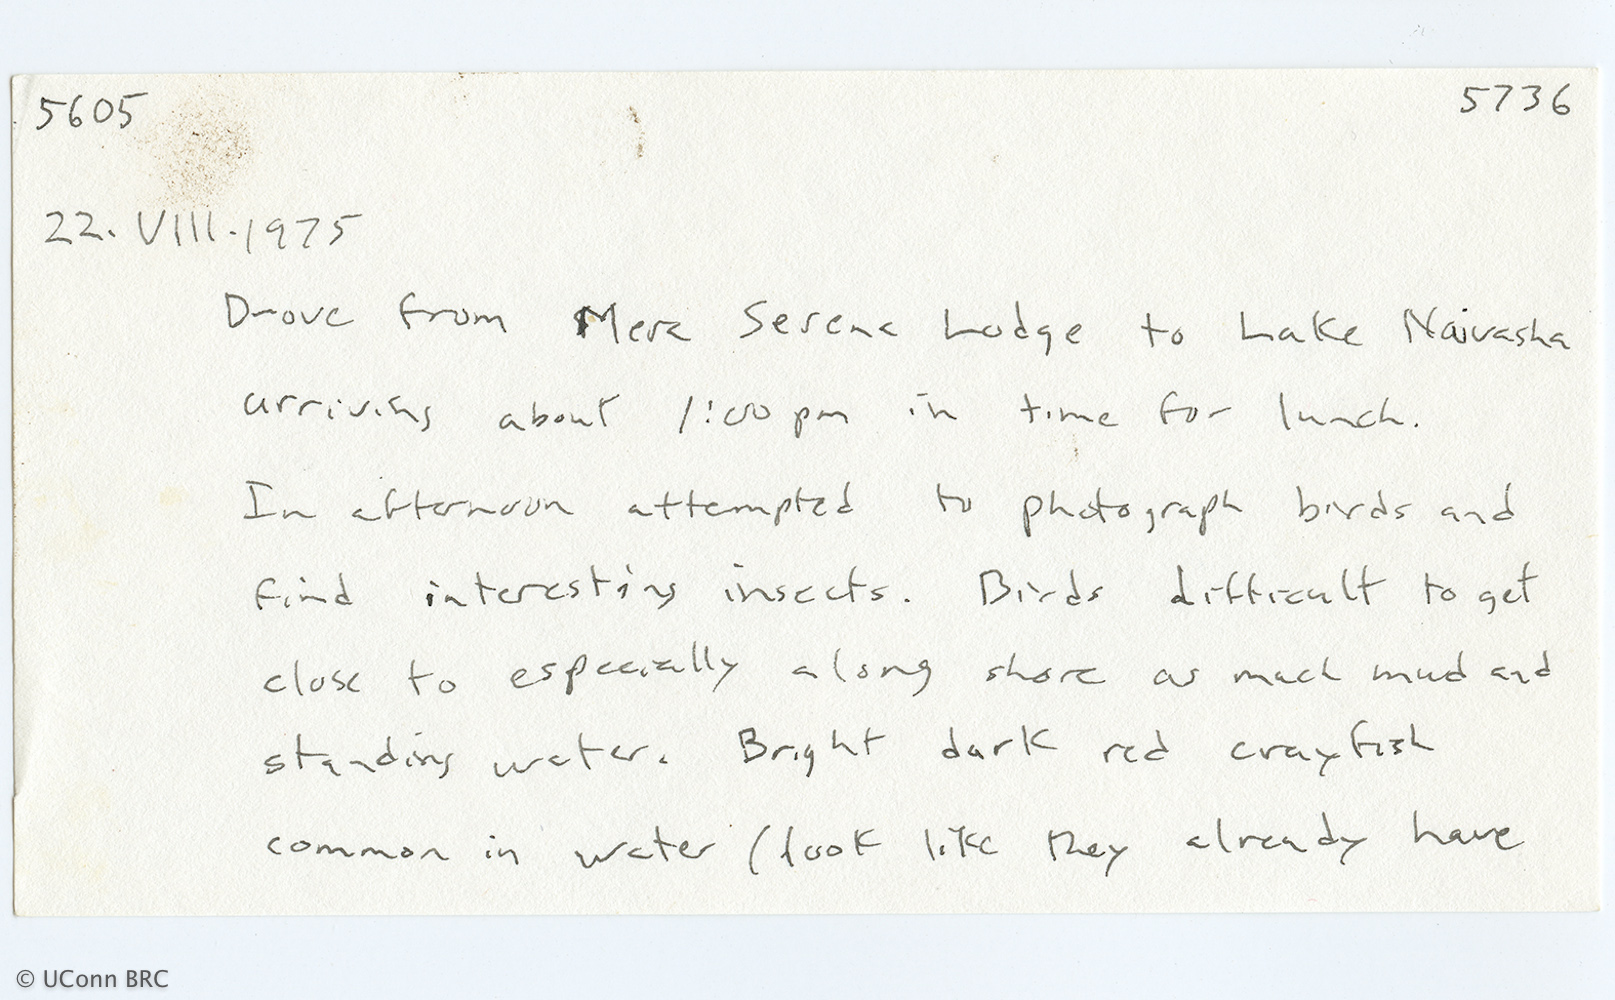 5605 5736
22.VIII.1975
Drove from Mera Serena Lodge to Lake Naivasha
arriving about 1:00 pm in time for lunch.
In afternoon attempted to photograph birds and
find interesting insects. Birds difficult to get
close to especially along shore as much mud and
standing water. Bright dark red crayfish
common in water (look like they already have
© UConn BRC